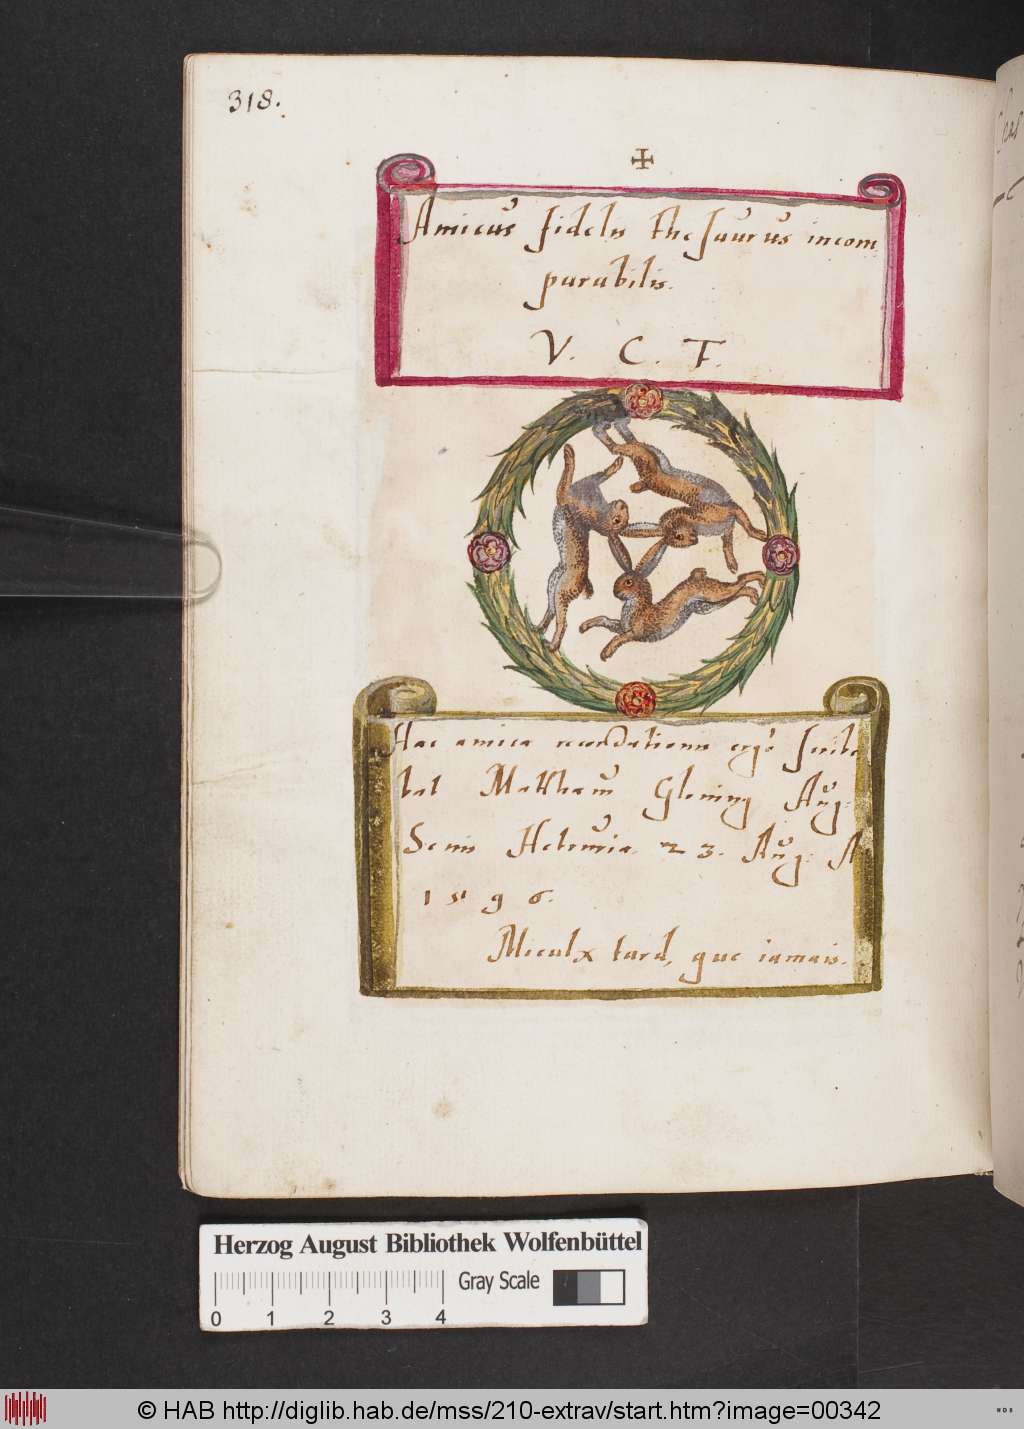 318.
Amicus fidelis thesaurus incom
parabilis.
V. C. T.
Hac amica recordationis ergo scribe
bat Matthæus Aug:
Senis Hetruriæ. 23. Aug: A
1596.
Mieulx tard, que iamais.
Herzog August Bibliothek Wolfenbüttel
Gray Scale
0 1 2 3 4
© HAB http://diglib.hab.de/mss/210-extrav/start.htm?image=00342